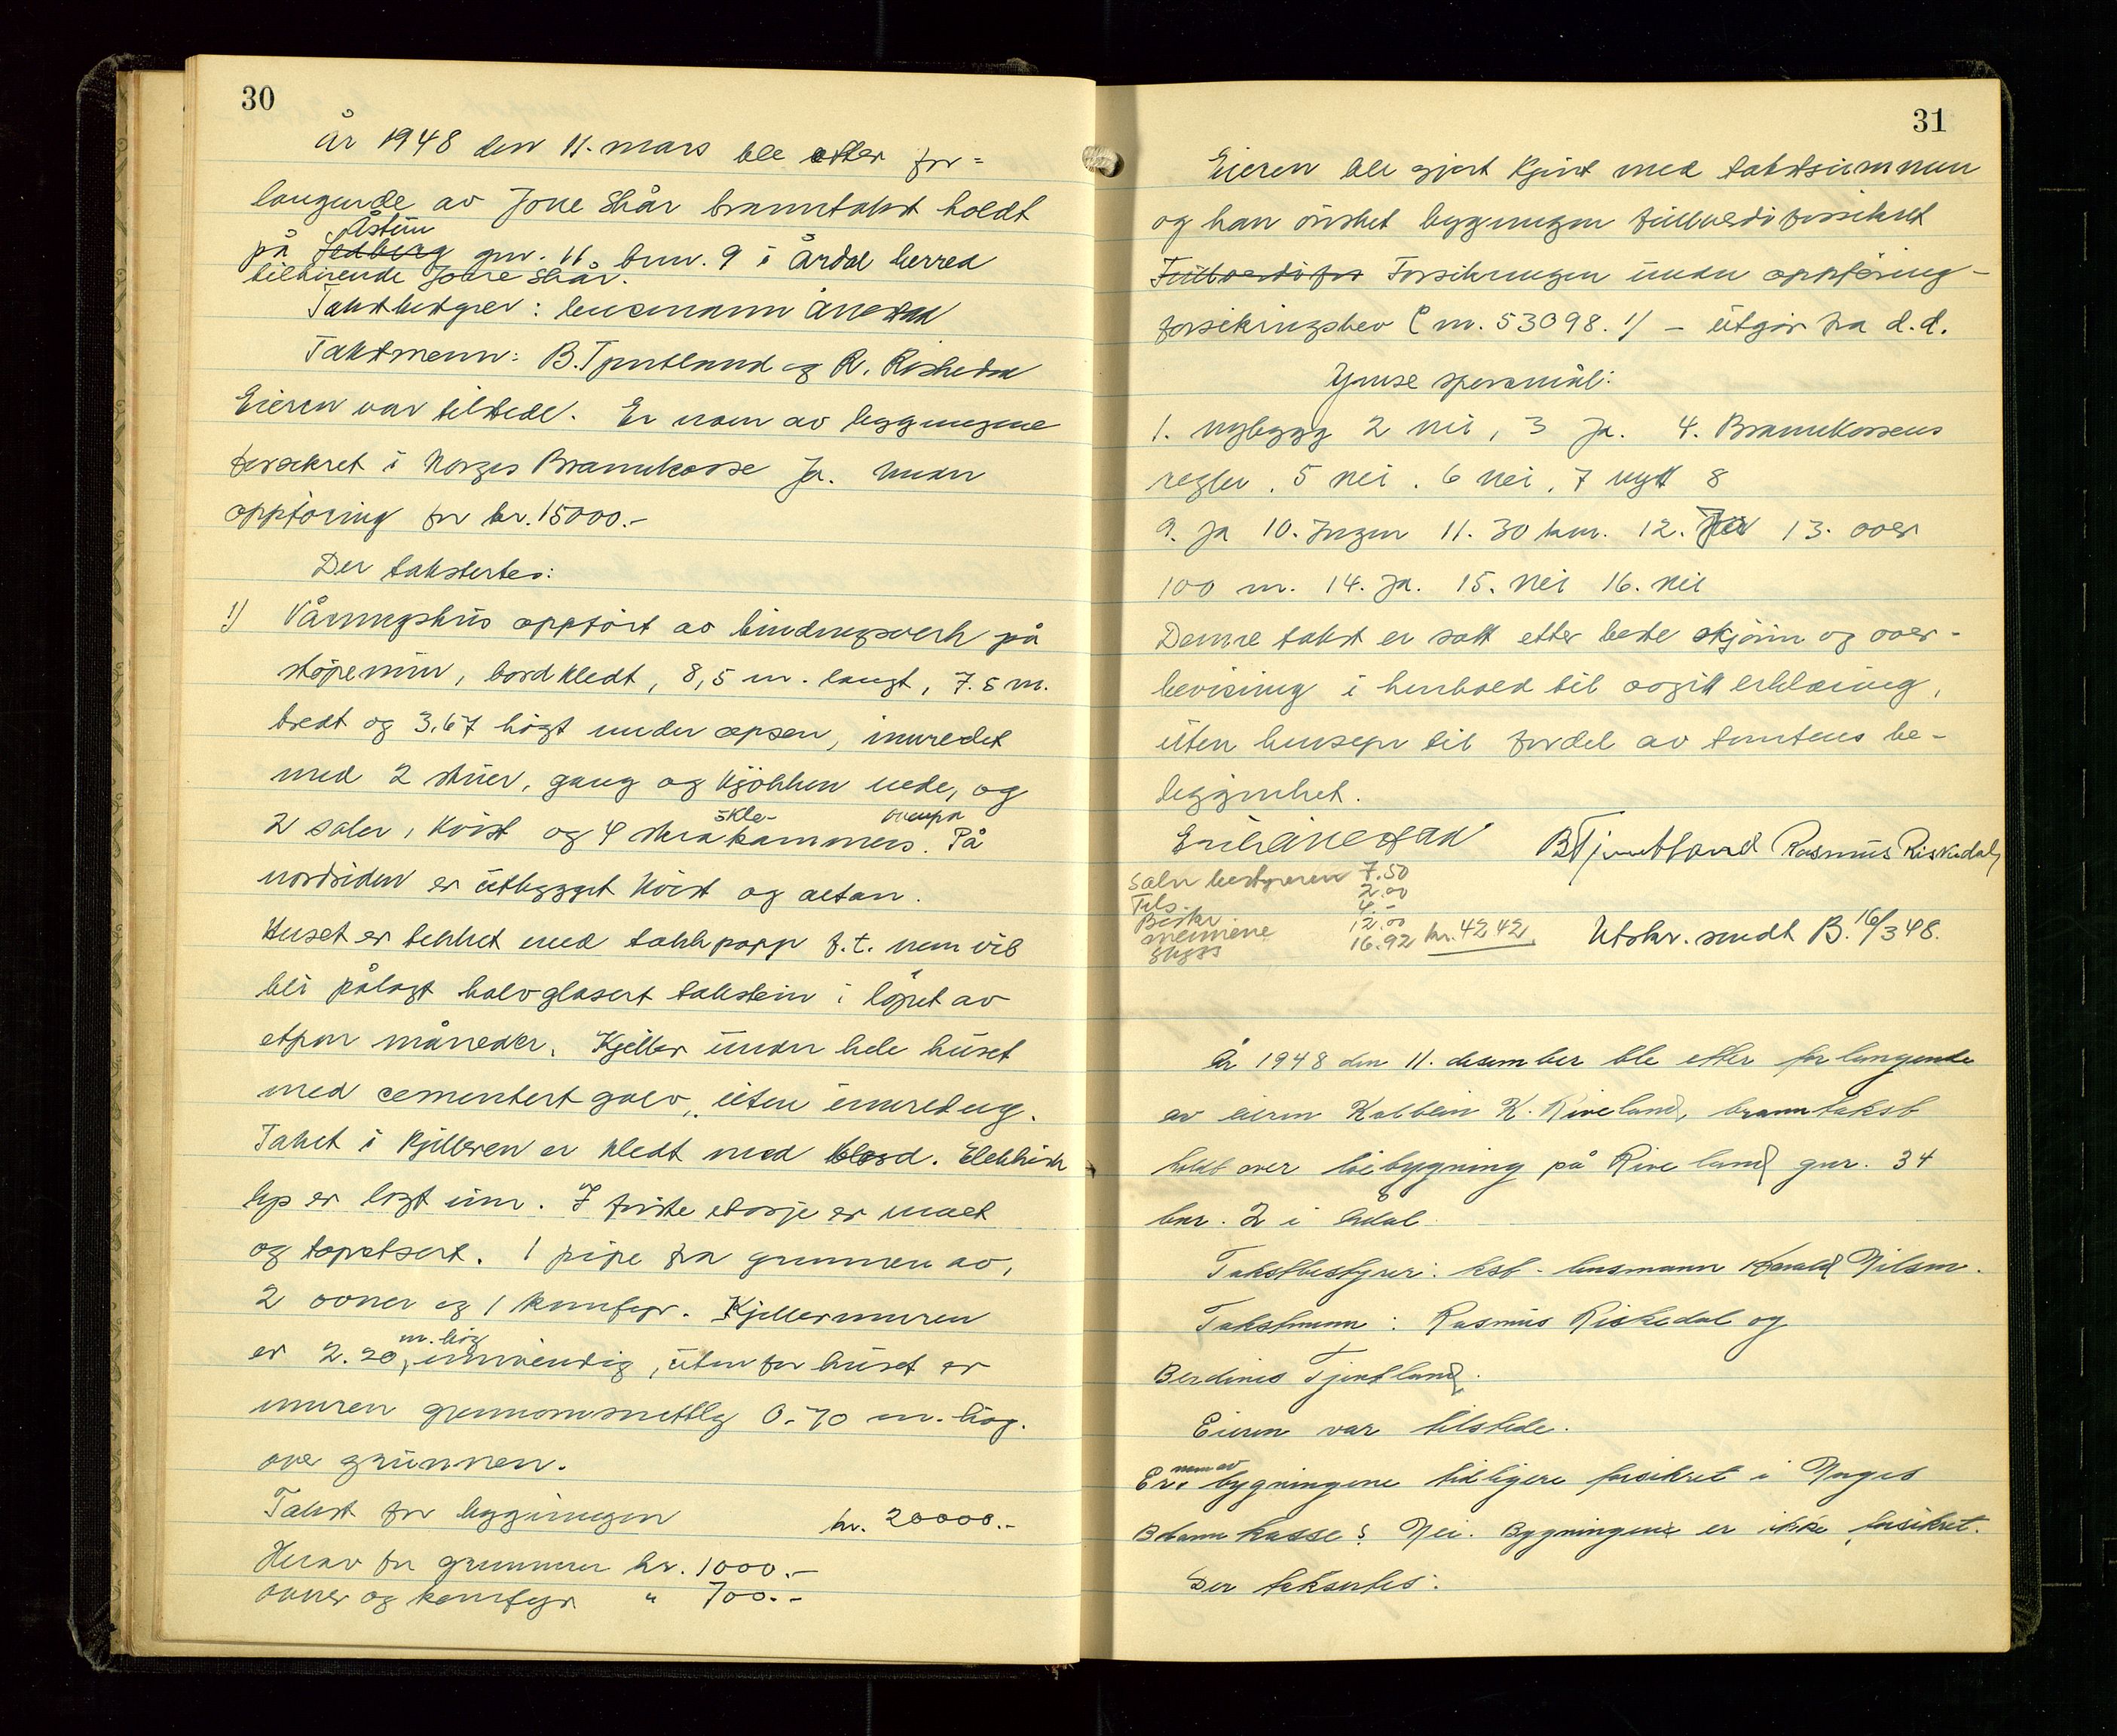 30
år 1948 den 11. mars ble etter for=
langende av Jone Skår branntakst holdt
Åstun
på Sedberg gnr. 11, bnr. 9 i Årdal herred
tilhørende Jone Skår.
Takstbestyrer: lensmann Ånestad
Takstmenn: B. Tjentland og R. Riskedal
Eieren var tilstede. Er noen av bygningene
forsikret i Norges Brannkasse Ja. Under
oppföring for kr. 15000.-
Der taksertes:
1) Våningshus oppfört av bindingsverk på
stöpemur, bordkledt, 8,5 m. langt, 7.5 m.
bredt og 3.67 högt under opsen, innredet
med 2 stuer, gang og kjökken nede, og
skle- ovenpå
2 saler, kvist og 4 kammers. På
nordsiden er utbygget kvist og altan.
Huset er tekket med takpapp f.t. men vil
bli pålagt halvglasert takstein i löpet av
etpar måneder. Kjeller under hele huset
med cementert golv, uten innredng.
Taket i kjelleren er kledt med bord. Elektrisk
lys er lagt inn. I förste etasje er malt
og tapetsert. 1 pipe fra grunnen av,
2 ovner og 1 komfyr. Kjellermuren
m. hög
er 2.20, innvendig, utenfor huset er
muren gjennomsnittlig 0.70 m. hög.
over grunnen.
Takst for bygningen kr. 20000.-
Herav for grunnmur kr. 1000.-
ovner og komfyr " 700.-
31
Eieren ble gjort kjent med takstsummen
og han önsket bygningen fullverdiforsikret
Fullverdifor Forsikringen under oppföring-
forsikringsbev (nr. 53098. 1) - utgår fra d.d.
Ymse spörsmål:
1. nybygg 2 nei, 3 Ja. 4. Brannkassens
regler. 5 nei. 6 nei. 7 nytt 8
9. Ja 10. Ingen 11. 30 km. 12. 13. over
100 m. 14. Ja. 15. Nei 16. nei
Denne takst er satt etter beste skjönn og over-
bevisning i henhold til avgitt erklæring,
uten hensyn til fordel av tomtens be-
liggenhet.
Erik Ånestad B Tjentland Rasmus Riskedal
Salær bestyreren 7.50
Tils. 2.00
Beskr. 4.-
mennene 12.00
skyss 16.92 kr. 42.42 Utskr. sendt B. 16/3 48.
År 1948 den 11. desember ble etter forlangende
av eieren Kolbein K. Riveland, branntakst
holdt over löebygning på Riveland gnr. 34
bnr. 2 i Årdal
Takstbestyrer: kst. lensmann Harald Nilsen.
Takstmenn: Rasmus Riskedal og
Berdines Tjentland.
Eieren var tilstede.
noen av
Er bygningene tidligere forsikret i Norges
Brannkasse? Nei. Bygningene er ikke forsikret.
Der taksertes: